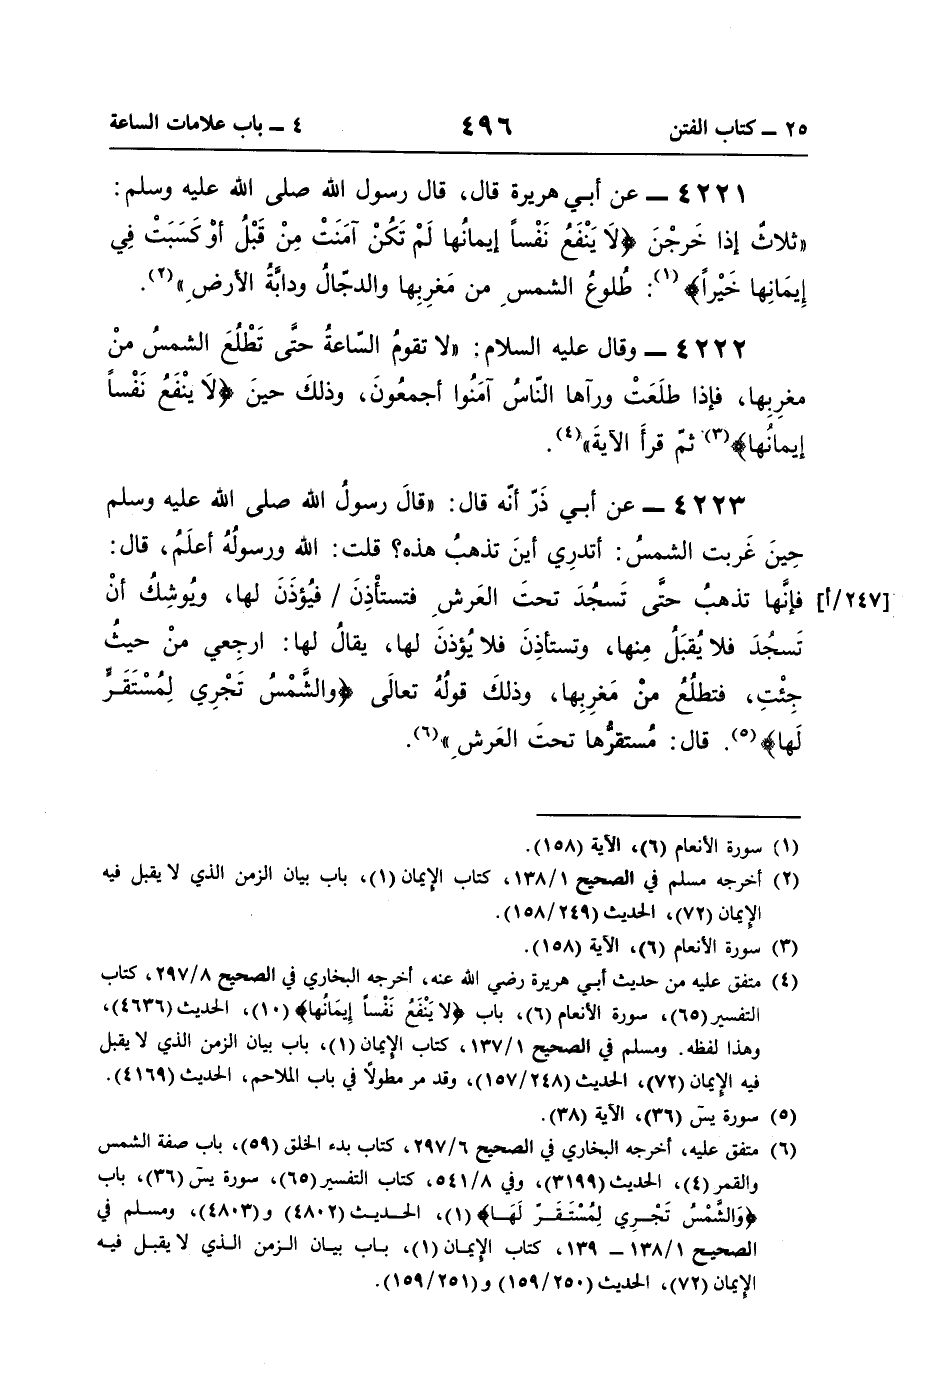 ٢٥ ـ كتاب الفتن ٤٩٦ ٤ ـ باب علامات الساعة
٤٢٢١ ـ عن أبي هريرة قال، قال رسول الله صلى الله عليه وسلم:
«ثلاثٌ إذا خَرجْنَ ﴿لَا يَنْفَعُ نَفْساً إيمانُها لَمْ تَكُنْ آمَنَتْ مِنْ قَبْلُ أوْ كَسَبَتْ فِي
إِيمَانِها خَيْراً﴾(١): طُلوعُ الشمسِ من مَغرِبِها والدجّالُ ودابَّةُ الأرضِ»(٢).
٤٢٢٢ ـ وقال عليه السلام: «لا تقومُ السّاعةُ حتَّى تَطْلُعَ الشمسُ منْ
مغرِبِها، فإذا طلَعَتْ ورآها النّاسُ آمَنُوا أجمعُونَ، وذلكَ حينَ ﴿لَا يَنْفَعُ نَفْساً
إيمانُها﴾(٣) ثمّ قرأَ الآيةَ»(٤).
٤٢٢٣ ـ عن أبي ذَرّ أنّه قال: «قالَ رسولُ الله صلى الله عليه وسلم
حِينَ غَربت الشمسُ: أتدري أينَ تذهبُ هذه؟ قلت: الله ورسولُهُ أعلَمُ، قال:
[٢٤٧/أ] فإنَّها تذهبُ حتَّى تَسجُدَ تحتَ العَرشِ فتستأْذِنَ / فيُؤذَنَ لها، ويُوشِكُ أنْ
تَسجُدَ فلا يُقبَلُ مِنها، وتستأذِنَ فلا يُؤذنَ لها، يقالُ لها: ارجِعي منْ حيثُ
جِئْتِ، فتطلُعُ منْ مَغرِبِها، وذلكَ قولُهُ تعالَى ﴿والشَّمْسُ تَجْرِي لِمُسْتَقَرٍّ
لَها﴾(٥). قال: مُستقرُّها تحتَ العَرشِ»(٦).
(١) سورة الأنعام (٦)، الآية (١٥٨).
(٢) أخرجه مسلم في الصحيح ١/١٣٨، كتاب الإيمان (١)، باب بيان الزمن الذي لا يقبل فيه
الإيمان (٧٢)، الحديث (٢٤٩/١٥٨).
(٣) سورة الأنعام (٦)، الآية (١٥٨).
(٤) متفق عليه من حديث أبي هريرة رضي الله عنه، أخرجه البخاري في الصحيح ٨/٢٩٧، كتاب
التفسير (٦٥)، سورة الأنعام (٦)، باب ﴿لا يَنْفَعُ نَفْساً إيمَانُها﴾ (١٠)، الحديث (٤٦٣٦)،
وهذا لفظه. ومسلم في الصحيح ١/١٣٧، كتاب الإيمان (١)، باب بيان الزمن الذي لا يقبل
فيه الإيمان (٧٢)، الحديث (٢٤٨/١٥٧)، وقد مر مطولًا في باب الملاحم، الحديث (٤١٦٩).
(٥) سورة يسٓ (٣٦)، الآية (٣٨).
(٦) متفق عليه، أخرجه البخاري في الصحيح ٦/٢٩٧، كتاب بدء الخلق (٥٩)، باب صفة الشمس
والقمر (٤)، الحديث (٣١٩٩)، وفي ٨/٥٤١، كتاب التفسير (٦٥)، سورة يسٓ (٣٦)، باب
﴿وَالشَّمْسُ تَجْرِي لِمُسْتَقَرّ لَهَا﴾ (١)، الحديث (٤٨٠٢) و(٤٨٠٣)، ومسلم في
الصحيح ١/١٣٨ ـ ١٣٩، كتاب الإيمان (١)، باب بيان الزمن الذي لا يقبل فيه
الإيمان (٧٢)، الحديث (٢٥٠/١٥٩) و(٢٥١/١٥٩).